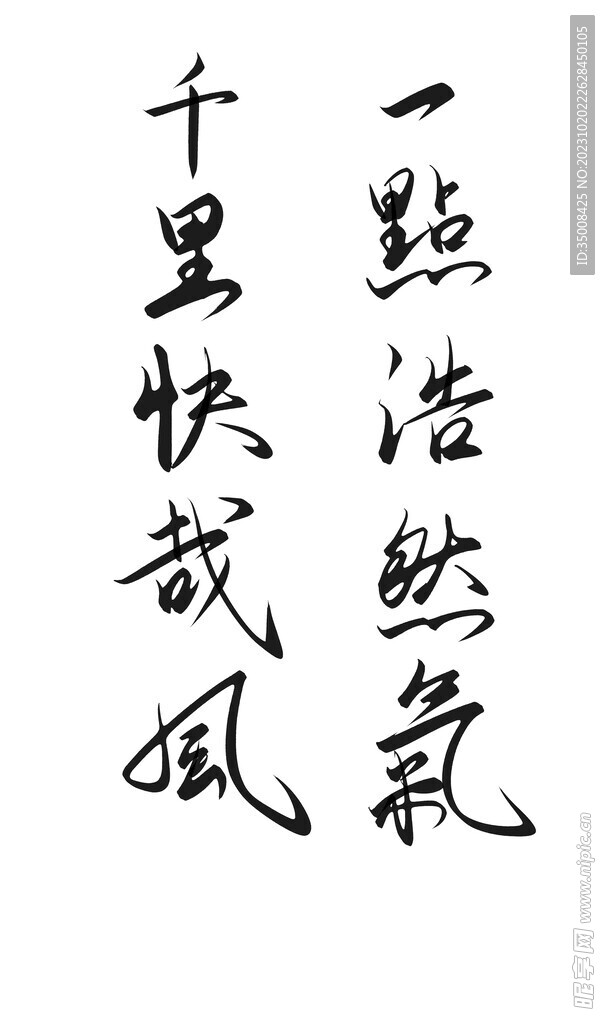 一點浩然氣
千里快哉風
ID:35008425 NO:20231020222628450105
昵享网 www.nipic.cn